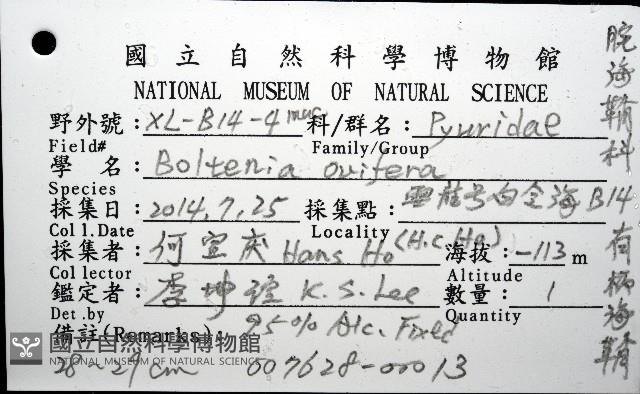 國立自然科學博物館
NATIONAL MUSEUM OF NATURAL SCIENCE
野外號：XL-B14-4 muc 科/群名：Pyuridae
Field# Family/Group
學 名：Boltenia ovifera
Species
採集日：2014.7.25 採集點：雲龍号白令海B14
Coll.Date Locality
採集者：何宣慶 Hans Ho (H.C.Ho) 海拔：-113 m
Collector Altitude
鑑定者：李坤瑄 K.S.Lee 數量：1
Det.by Quantity
備註(Remarks) 95% Alc. Fixed
28-29cm 007628-00013
國立自然科學博物館
NATIONAL MUSEUM OF NATURAL SCIENCE
脘海鞘科
有柄海鞘